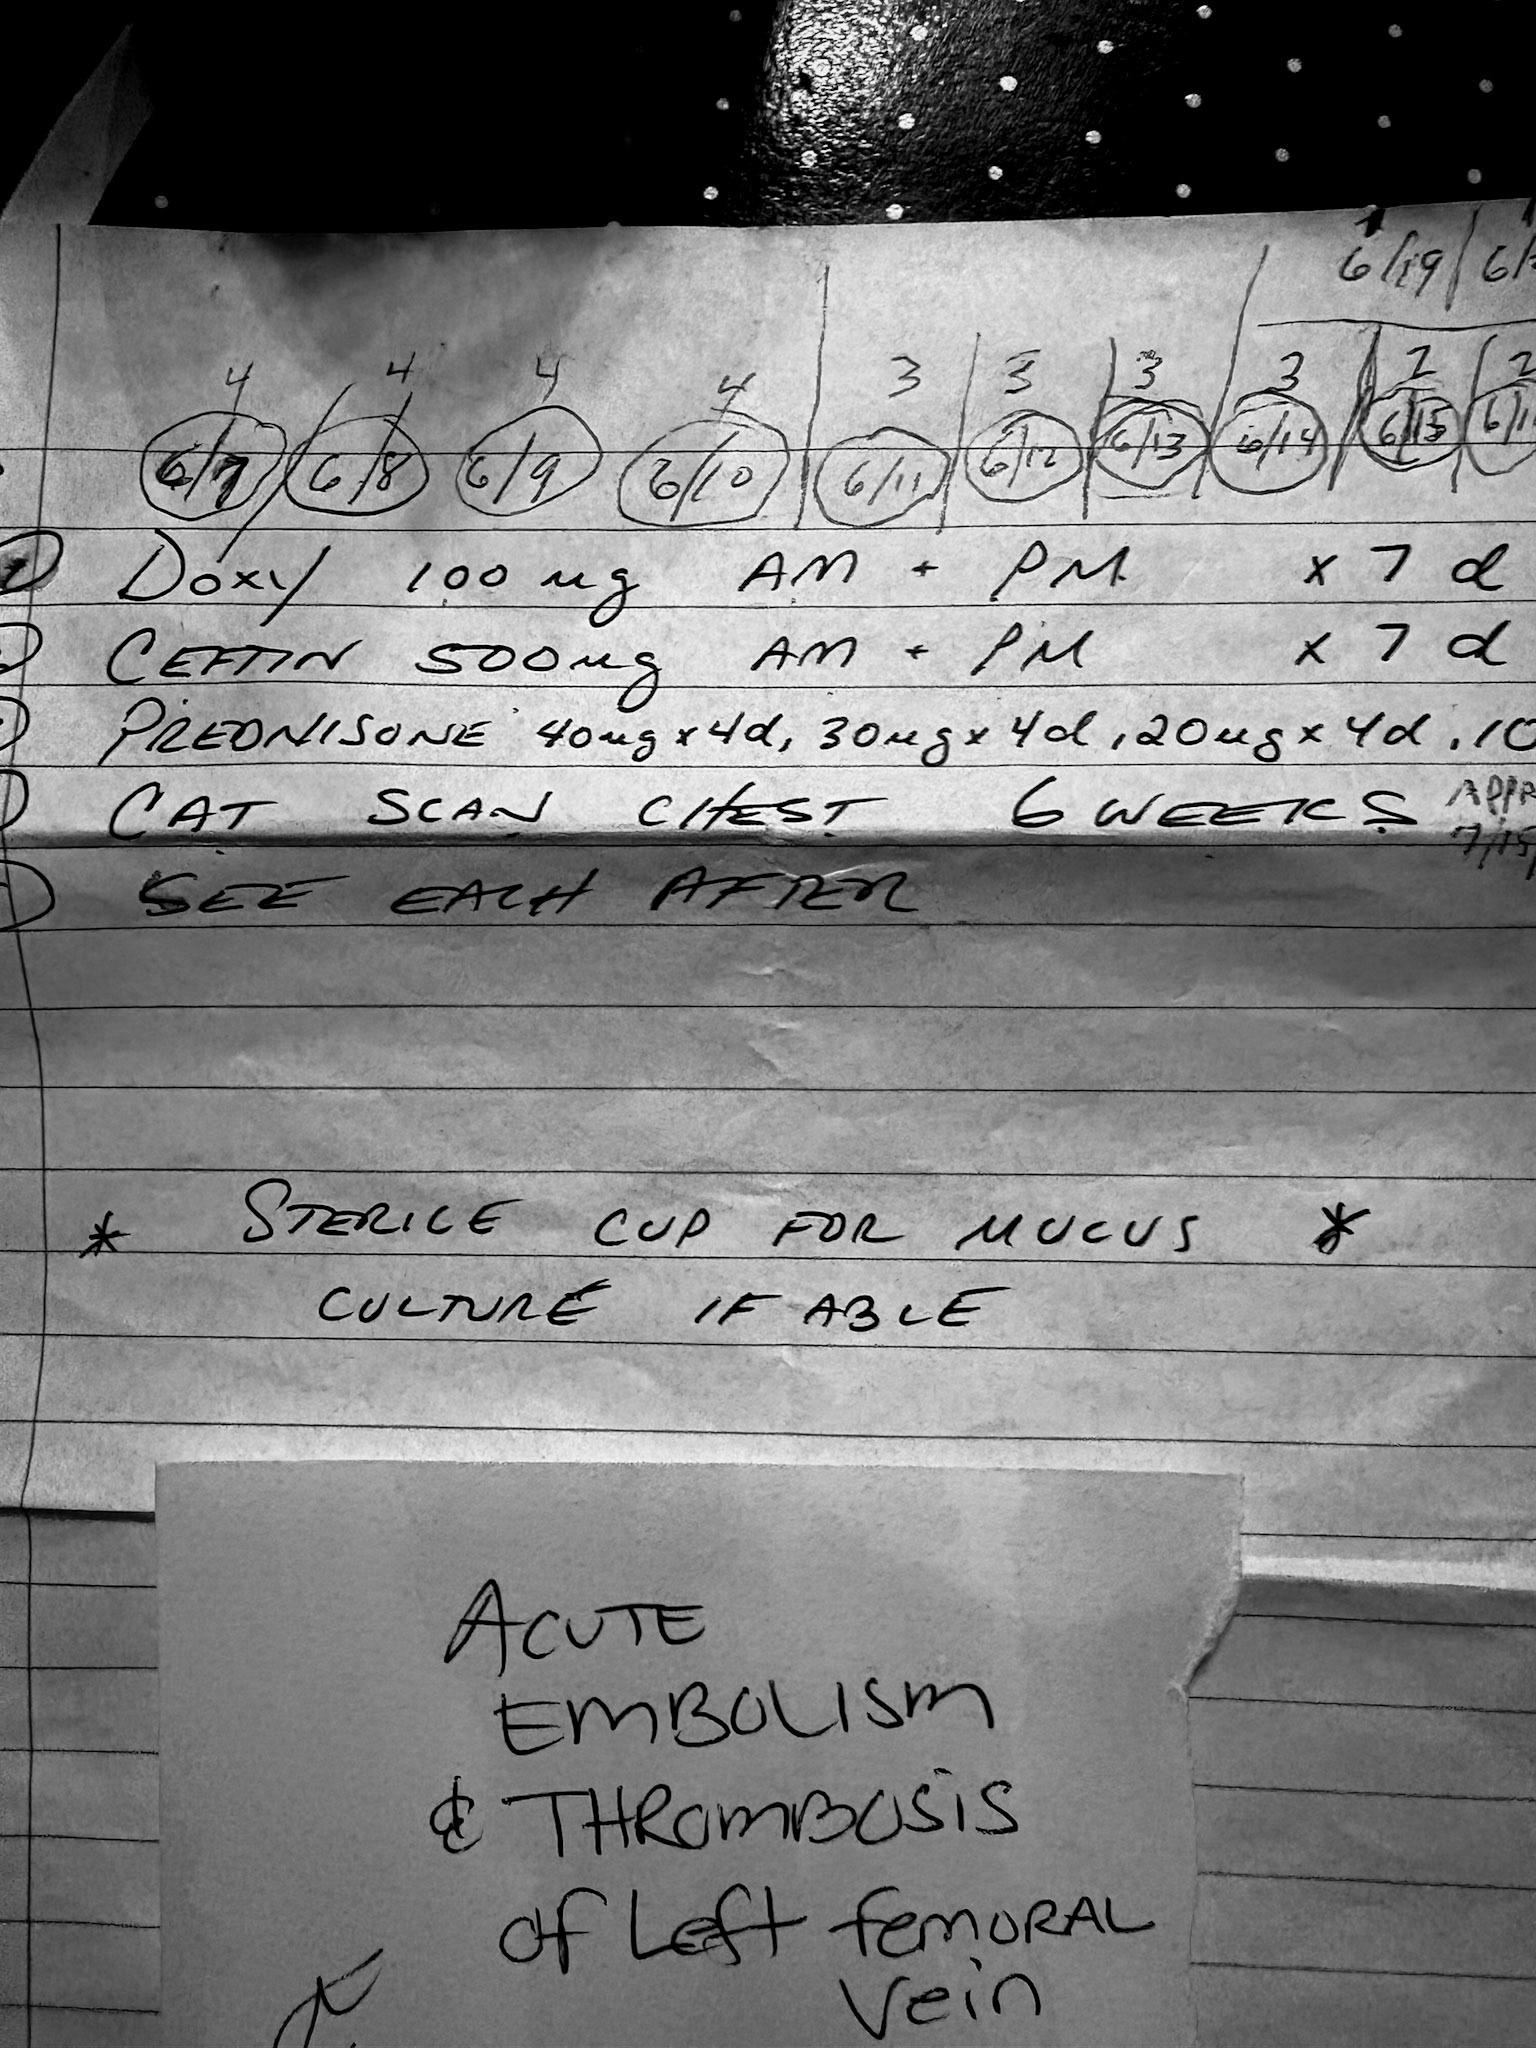 6/19 6/
4 4 4 4 3 3 3 3 2 2
6/7 6/8 6/9 6/10 6/11 6/12 6/13 6/14 6/15 6/1
1 Doxy 100 mg AM + PM x 7 d
CEFTIN 500mg AM + PM x 7 d
PREDNISONE 40mg x 4d, 30mg x 4d, 20mg x 4d, 10
CAT SCAN CHEST 6 WEEKS APPR
7/15
SEE EACH AFTER
* STERILE CUP FOR MUCUS *
CULTURE IF ABLE
ACUTE
EMBOLISM
& THROMBOSIS
of Left femoral
Vein